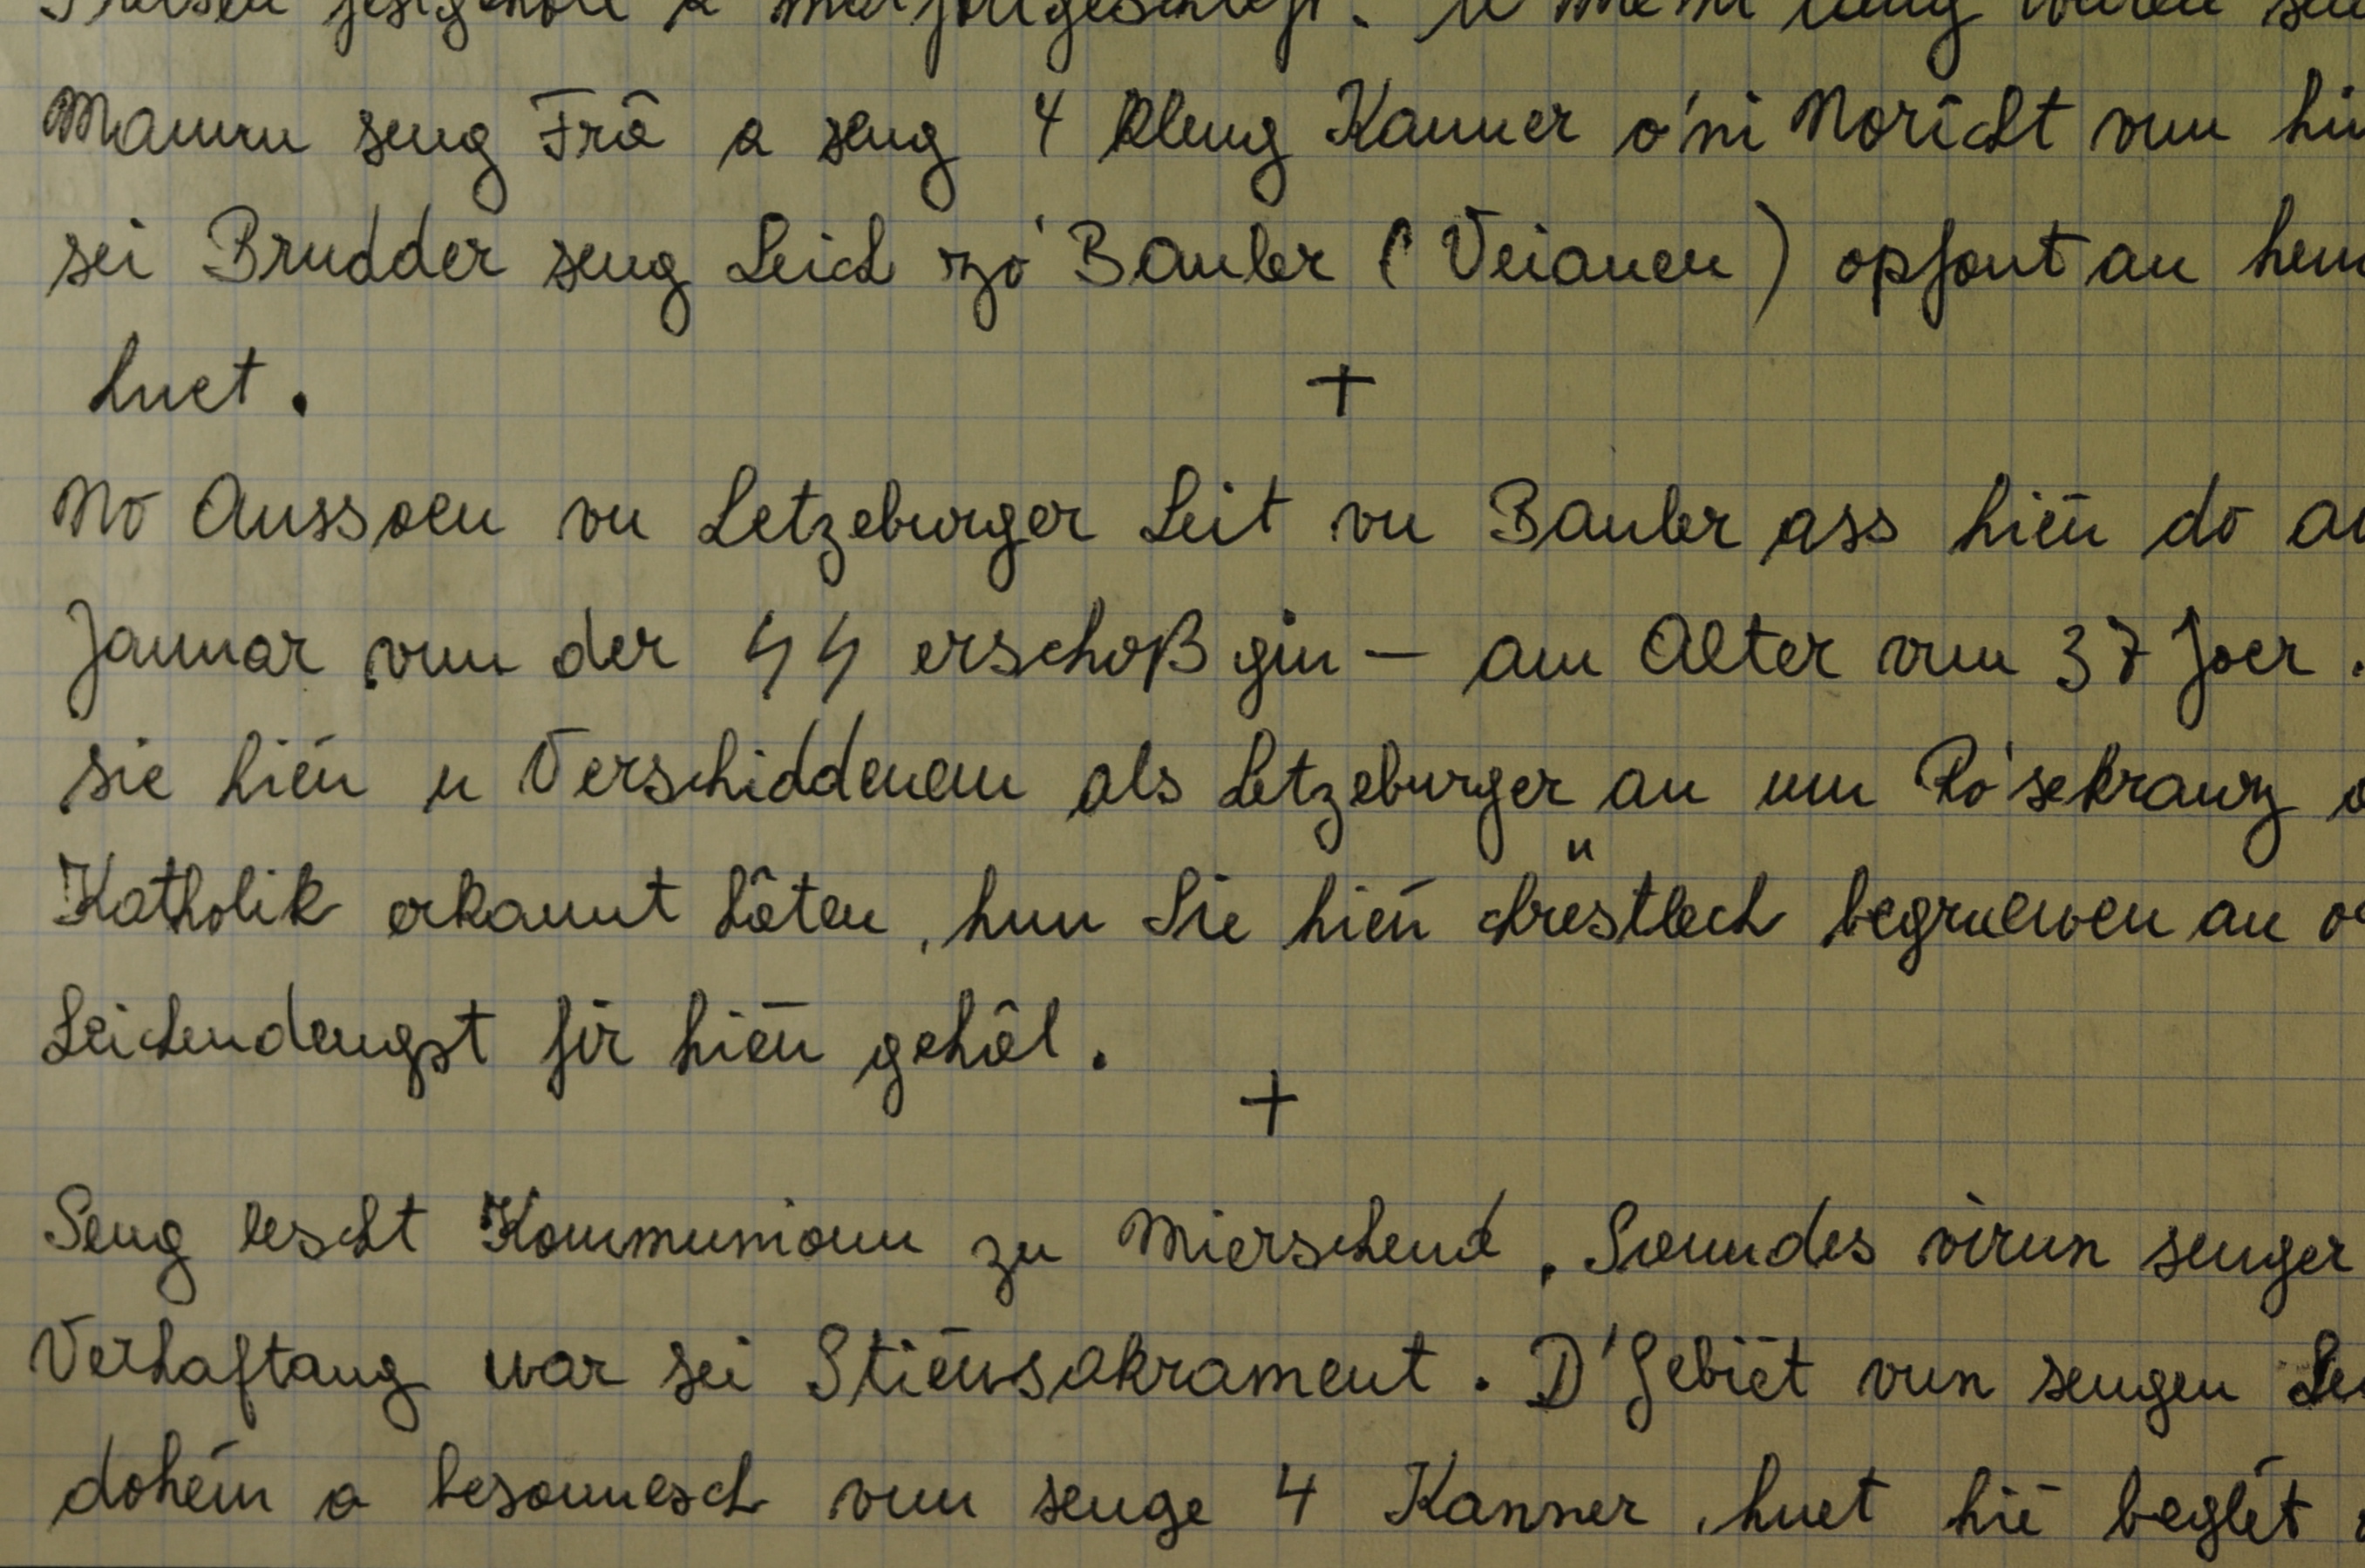 Mamm seng Frâ a seng 4 kleng Kanner o'ni Noricht vun
sei Brudder seng Leich zo' Bauler (Veianen) opfont an
huet.
+
No Aussoen vu Letzeburger Leit vu Bauler ass hiēn do
Januar vun der SS erschoß gin – am Alter vun 37 Joer.
sie hiēn u Verschiddenem als Letzeburger an um Ro'sekranz
Katholik erkannt hâten, hun Sie hiēn chrëstlech begruewen an
Leichendengst fir hiēn gehâl.
+
Seng lescht Kommunioun zu Mierscherd, Sonndes virun senger
Verhaftang war sei Stiēwsakrament. D'Gebiēt vun sengen
dohēm a besonnesch vun senge 4 Kanner, huet hiē beglēt